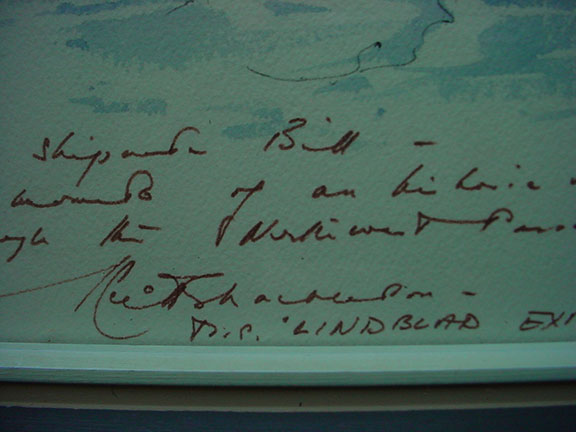 Shipmate Bill –
memento of an historic
ugh the Northwest Pass
Keith Shackleton –
M.S. 'LINDBLAD EX